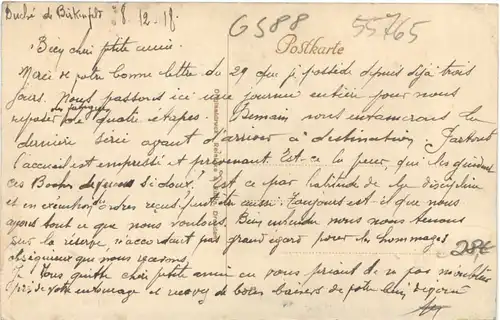 Duché de Birkenfeld 8.12.18.
G588 55765
Postkarte
Bien chère ptite amie.
Merci de votre bonne lettre du 29 que je possède depuis déjà trois
jours. Nous passons ici une journée entière pour nous
reposer de quatre étapes. Demain nous entamerons la
dernière série avant d'arriver à destination. Partout
l'accueil est empressé et prévenant. Est-ce la peur qui les
ces Boches si doux? Est ce par habitude de la discipline
et en exécution d'ordres reçus Toujours est-il que nous
avons tout ce que nous voulons. Bien entendu nous nous tenons
sur la réserve, n'accordant pas grand égard pour les hommages
obséquieux que nous recevons.
28€
Je vous quitte chère ptite amie en vous priant de ne pas m'oublier
près de votre entourage et recevez de bons baisers de votre ami